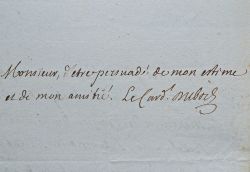 Monsieur, d'etre persuadé de mon estime
et de mon amitié. Le Card. Dubois